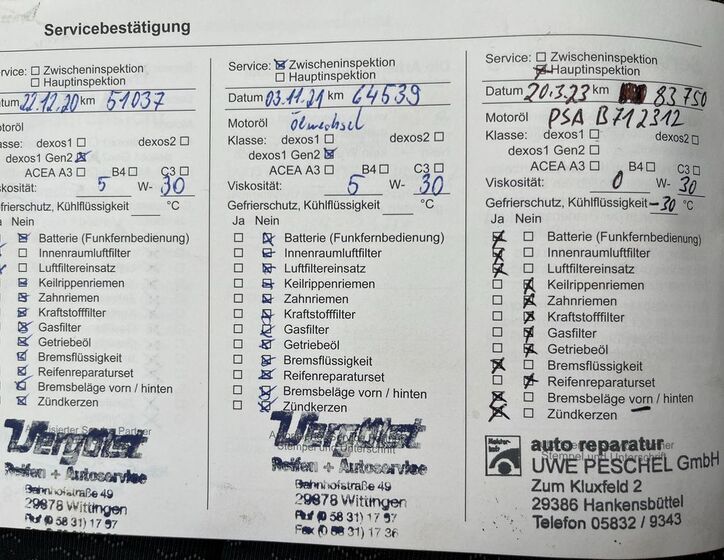 Servicebestätigung
rvice: Zwischeninspektion
Hauptinspektion
atum 22.12.20 km 51037
otoröl
asse: dexos1 dexos2
dexos1 Gen2
ACEA A3 B4 C3
iskosität: 5 W- 30
efrierschutz, Kühlflüssigkeit °C
a Nein
Batterie (Funkfernbedienung)
Innenraumluftfilter
Luftfiltereinsatz
Keilrippenriemen
Zahnriemen
Kraftstofffilter
Gasfilter
Getriebeöl
Bremsflüssigkeit
Reifenreparaturset
Bremsbeläge vorn / hinten
Zündkerzen
Vergölst
Reifen + Autoservice
Bahnhofstraße 49
29878 Wittingen
Ruf (0 58 31) 17 97
Service: Zwischeninspektion
Hauptinspektion
Datum 03.11.21 km 64539
Motoröl Ölwechsel
Klasse: dexos1 dexos2
dexos1 Gen2
ACEA A3 B4 C3
Viskosität: 5 W- 30
Gefrierschutz, Kühlflüssigkeit °C
Ja Nein
Batterie (Funkfernbedienung)
Innenraumluftfilter
Luftfiltereinsatz
Keilrippenriemen
Zahnriemen
Kraftstofffilter
Gasfilter
Getriebeöl
Bremsflüssigkeit
Reifenreparaturset
Bremsbeläge vorn / hinten
Zündkerzen
Vergölst
Stempel und Unterschrift
Reifen + Autoservice
Bahnhofstraße 49
29878 Wittingen
Ruf (0 58 31) 17 97
Fax (0 58 31) 17 36
Service: Zwischeninspektion
Hauptinspektion
Datum 20.3.23 km 83750
Motoröl PSA B712312
Klasse: dexos1 dexos2
dexos1 Gen2
ACEA A3 B4 C3
Viskosität: 0 W- 30
Gefrierschutz, Kühlflüssigkeit -30 °C
Ja Nein
Batterie (Funkfernbedienung)
Innenraumluftfilter
Luftfiltereinsatz
Keilrippenriemen
Zahnriemen
Kraftstofffilter
Gasfilter
Getriebeöl
Bremsflüssigkeit
Reifenreparaturset
Bremsbeläge vorn / hinten
Zündkerzen
auto reparatur
Stempel und Unterschrift
UWE PESCHEL GmbH
Zum Kluxfeld 2
29386 Hankensbüttel
Telefon 05832 / 9343